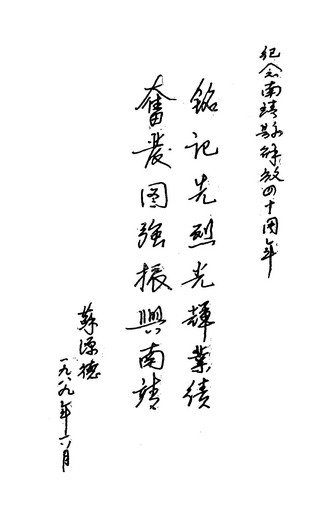 纪念南靖县解放四十周年
铭记先烈光輝業绩
奮发图強振興南靖
蘇源德
一九八九年六月